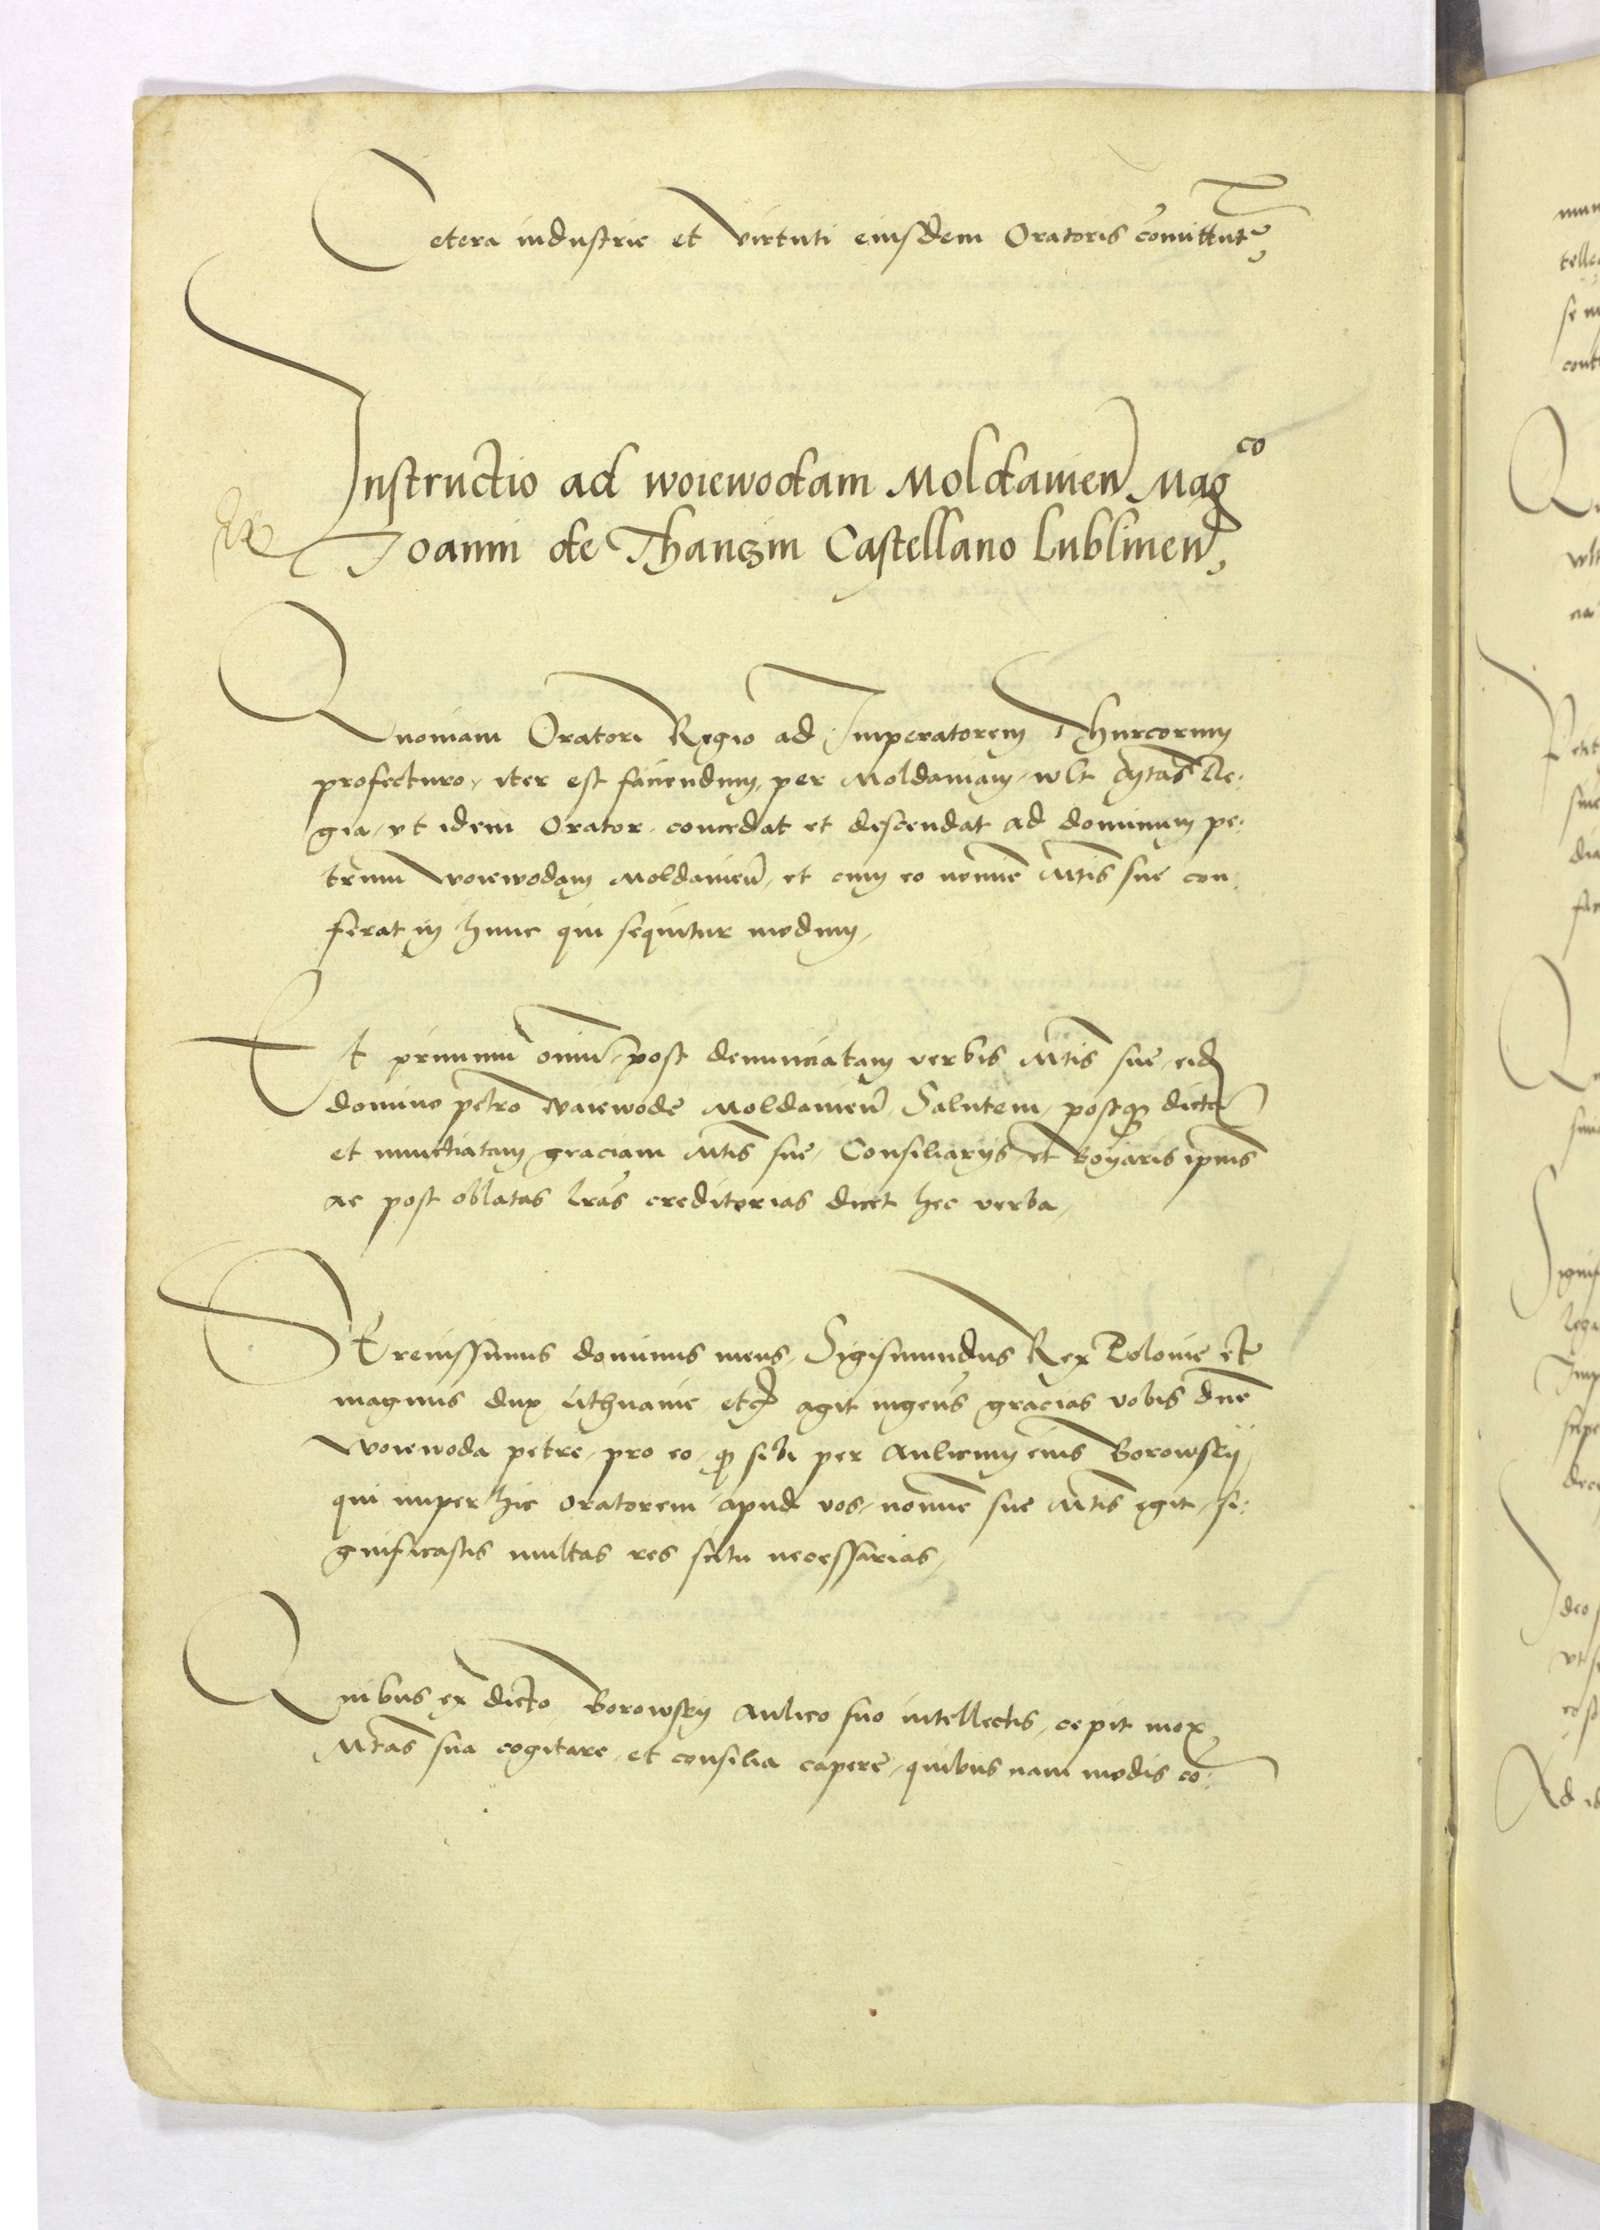 Cetera industrie et virtuti eiusdem Oratoris comittutr̃,
Instructio ad woiewodam Moldauien̄ Magco
Joanni de Thanczin Castellano Lublinen̄,
Quoniam Oratori Regio ad Imperatorem Thurcorum
profecturo, iter est faciendum, per Moldaviam, wlt Mtas Re:
gia, vt idem Orator, concedat et descendat ad dominum pe:
trum woiewodam Moldauien̄, et cum eo nomine Mtis sue con:
ferat in hunc qui sequitur modum,
Et primum omniū, post denunciatam verbis Mtis sue, eid
domino petro Vaiewode Moldauien̄, Salutem, postq̄ dictā
et nunctiatam graciam Mtis sue, Consiliariis et Boyaris ipius
ac post oblatas lras creditorias dicet hec verba,
SErenissimus dominus meus, Sigismundus Rex Polonie et
magnus dux Lithuanie etc̄ agit ingens gracias vobis dne
woiewoda petre, pro eo, q̄ sibi per Aulicum eius Borowskij,
qui nuper hic oratorem apud vos, nomine sue Mtis egit, si:
gnificastis multas res scitu necessarias,
Quibus ex dicto Borowskij Aulico suo intellectis, cepit mox
Mtas sua cogitare, et consilia capere, quibus nam modis eo: